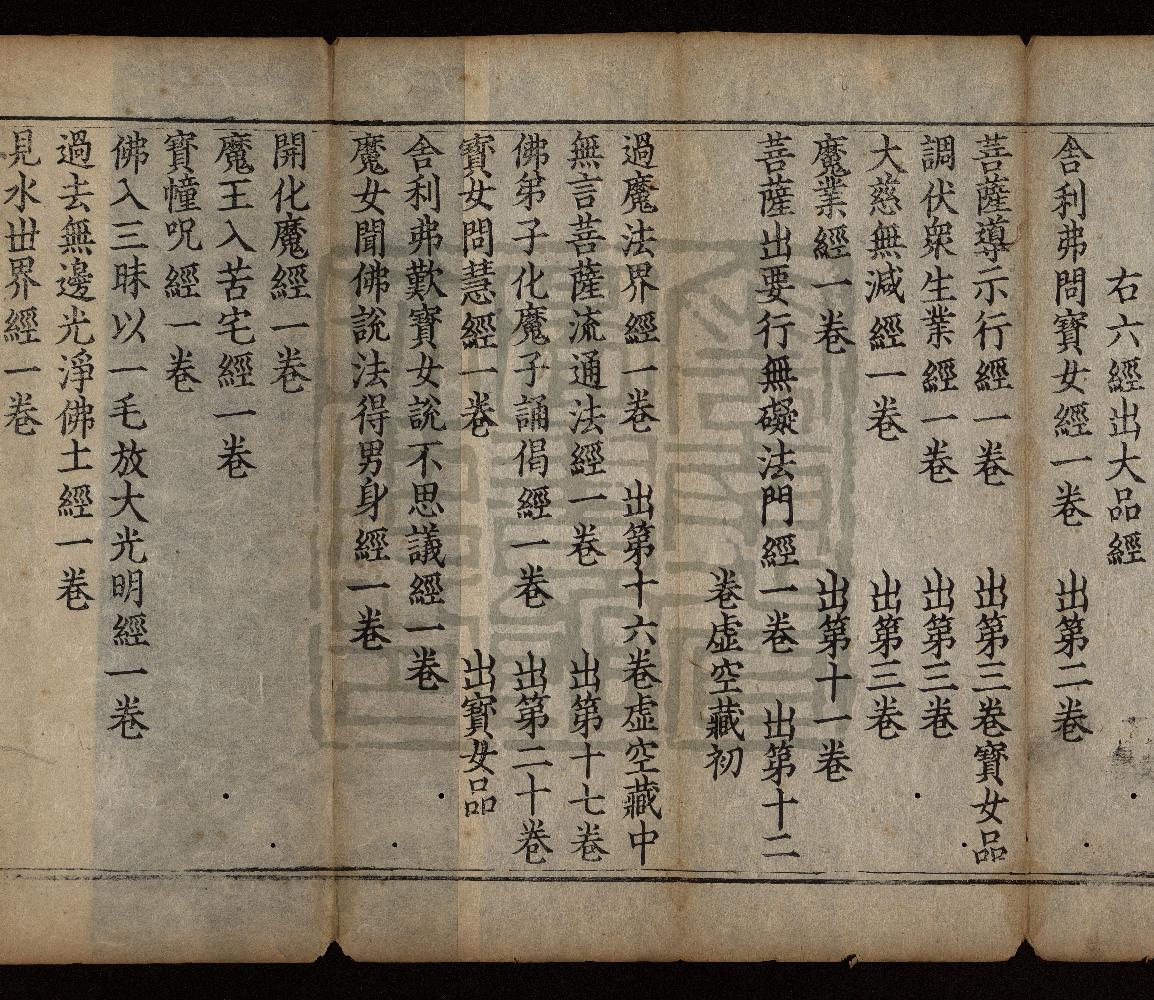 右六經出大品經
舍利弗問寶女經一卷 出第二卷
菩薩導示行經一卷 出第三卷寶女品
調伏衆生業經一卷 出第三卷
大慈無減經一卷 出第三卷
魔業經一卷 出第十一卷
菩薩出要行無礙法門經一卷 出第十二
卷虛空藏初
過魔法界經一卷 出第十六卷虛空藏中
無言菩薩流通法經一卷 出第十七卷
佛弟子化魔子誦偈經一卷 出第二十卷
寶女問慧經一卷 出寶女品
舍利弗歎寶女說不思議經一卷
魔女聞佛說法得男身經一卷
開化魔經一卷
魔王入苦宅經一卷
寶幢呪經一卷
佛入三昧以一毛放大光明經一卷
過去無邊光淨佛土經一卷
見水世界經一卷